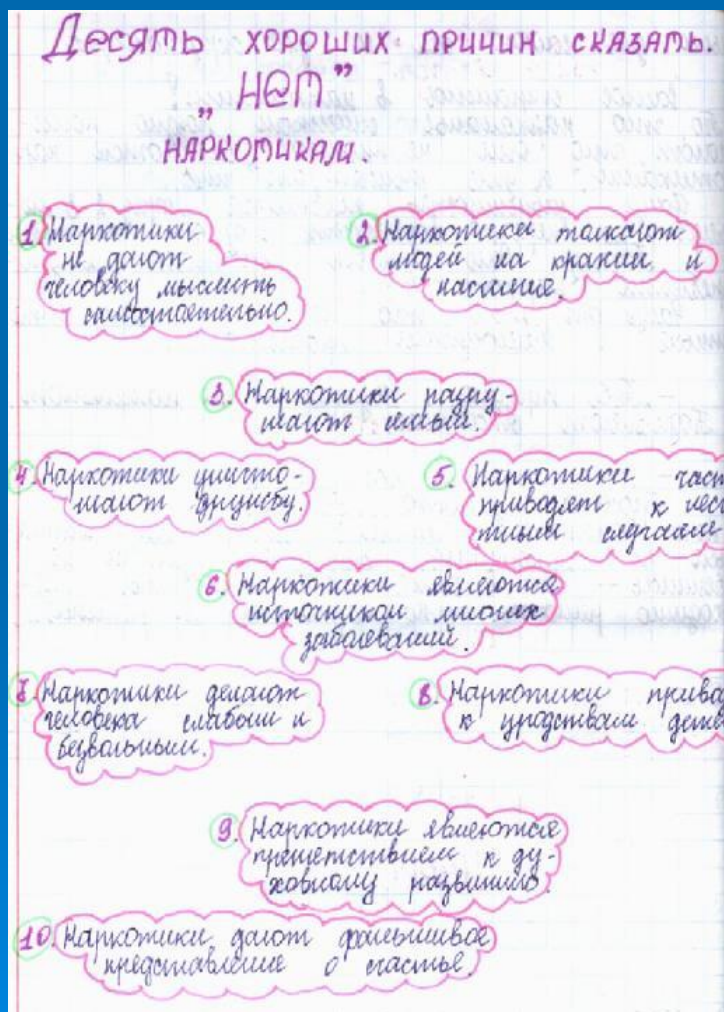 Десять хороших причин сказать.
„НЕТ”
НАРКОТИКАМ
1. Наркотики
не дают
человеку мыслить
самостоятельно.
2. Наркотики толкают
людей на кражи и
насилие.
3. Наркотики разру-
шают семьи.
4. Наркотики уничто-
жают дружбу.
5. Наркотики част
приводят к нес
тным случаям
6. Наркотики являются
источником многих
заболеваний.
7. Наркотики делают
человека слабым и
безвольным.
8. Наркотики приво
к уродствам дете
9. Наркотики являются
препятствием к ду-
ховному развитию.
10. Наркотики дают фальшивое
представление о счастье.